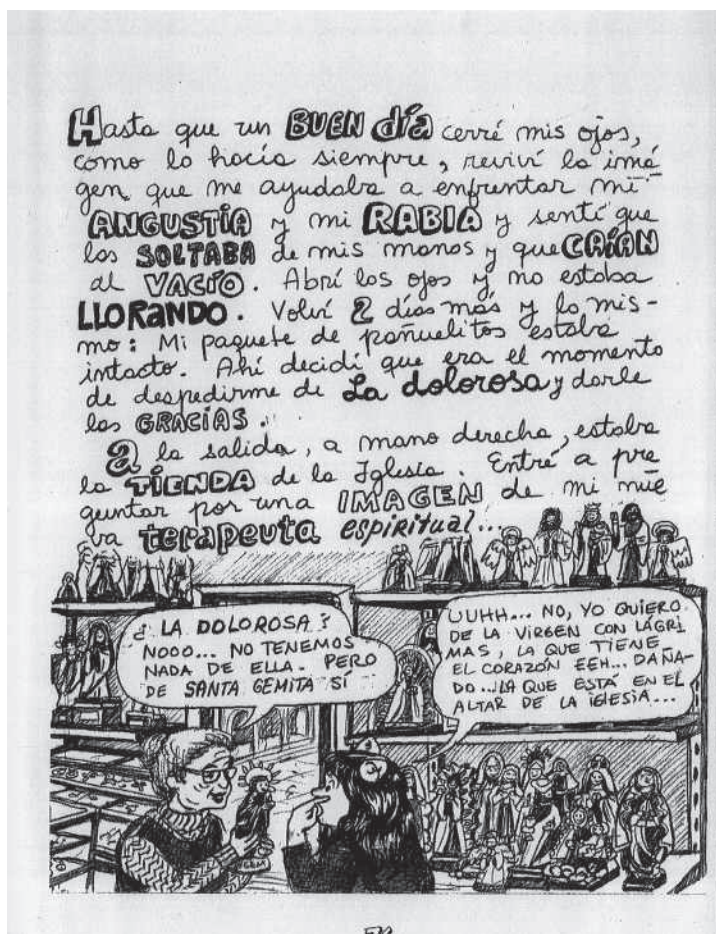 Hasta que un BUEN día cerré mis ojos,
como lo hacía siempre, reviví la imá
gen que me ayudaba a enfrentar mi
ANGUSTIA y mi RABIA y sentí que
las SOLTABA de mis manos y que CAÍAN
al VACÍO. Abrí los ojos y no estaba
LLORANDO. Volví 2 días más y lo mis-
mo: Mi paquete de pañuelitos estaba
intacto. Ahí decidí que era el momento
de despedirme de La dolorosa y darle
las GRACIAS.
A la salida, a mano derecha, estaba
la TIENDA de la Iglesia. Entré a pre
guntar por una IMAGEN de mi nue
va terapeuta espiritual...
¿LA DOLOROSA?
NOOO... NO TENEMOS
NADA DE ELLA. PERO
DE SANTA GEMITA SÍ
UUHH... NO, YO QUIERO
DE LA VIRGEN CON LÁGRI
MAS, LA QUE TIENE
EL CORAZÓN EEH... DAÑA-
DO...LA QUE ESTÁ EN EL
ALTAR DE LA IGLESIA...
GEM